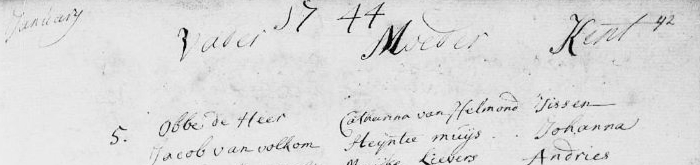 January
1744
Vader Moeder Kint 42
5. Obbe de Heer Catharina van Helmond Tissen
Jacob van volkom Heyntie muijs Johanna
Lievers Andries